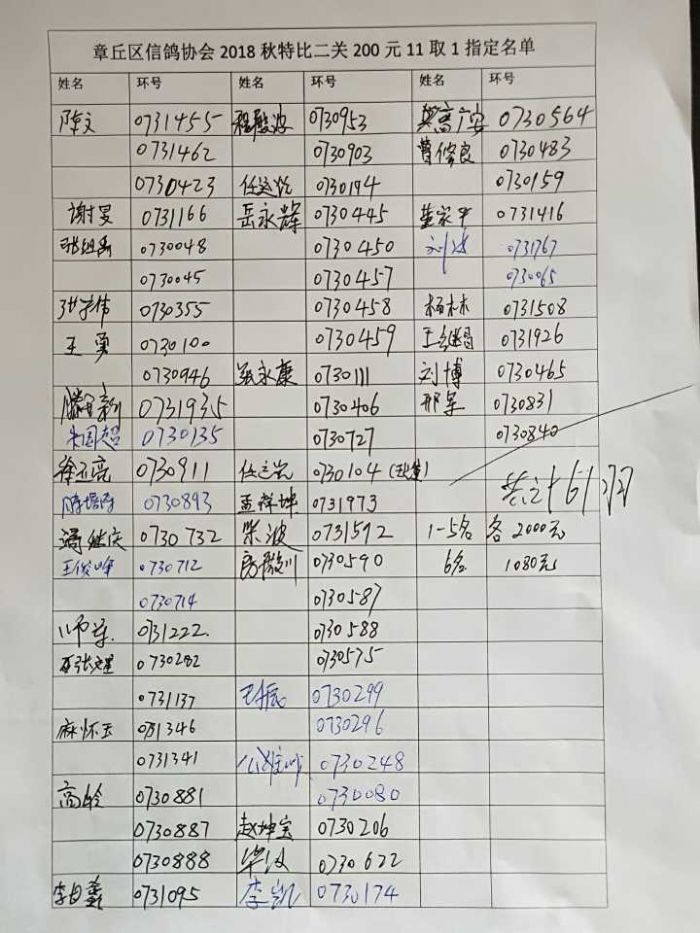 章丘区信鸽协会 2018 秋特比二关 200 元 11 取 1 指定名单
姓名 环号 姓名 环号 姓名 环号
陈文 0731455 程殿波 0730953 高广安 0730564
0731462 0730903 曹修良 0730483
0730423 0730194 0730159
谢昊 0731166 岳永辉 0730445 董家平 0731416
0730048 0730450 刘波 0731767
0730045 0730457 0730065
张学伟 0730355 0730458 杨林 0731508
王勇 0730100 0730459 王继昌 0731926
0730946 张永康 0730111 刘博 0730465
0731935 0730406 邢军 0730831
朱国超 0730135 0730727 0730840
徐丕亮 0730911 0730104 共计 61羽
0730893 孟祥坤 0731973
0730732 柴波 0731592 1-5名 各2000元
王俊峰 0730712 0730590 6名 1080元
0730714 0730587
0731222. 0730588
0730282 0730575
0731137 王振 0730299
麻怀玉 0731346 0730296
0731341 0730248
高龄 0730881 0730080
0730887 赵坤宝 0730206
0730888 毕汉 0730622
李曰鑫 0731095 李凯 0730174